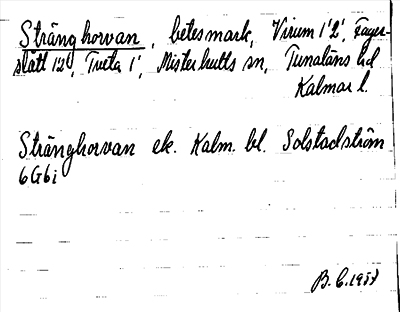 Stränghorvan, betesmark, Virum 1'2', Fager-
slätt 12', Tveta 1', Misterhults sn, Tunaläns hd
Kalmar l.
Stränghorvan ek. Kalm. bl. Solstadström
6G6i
B. C. 1957